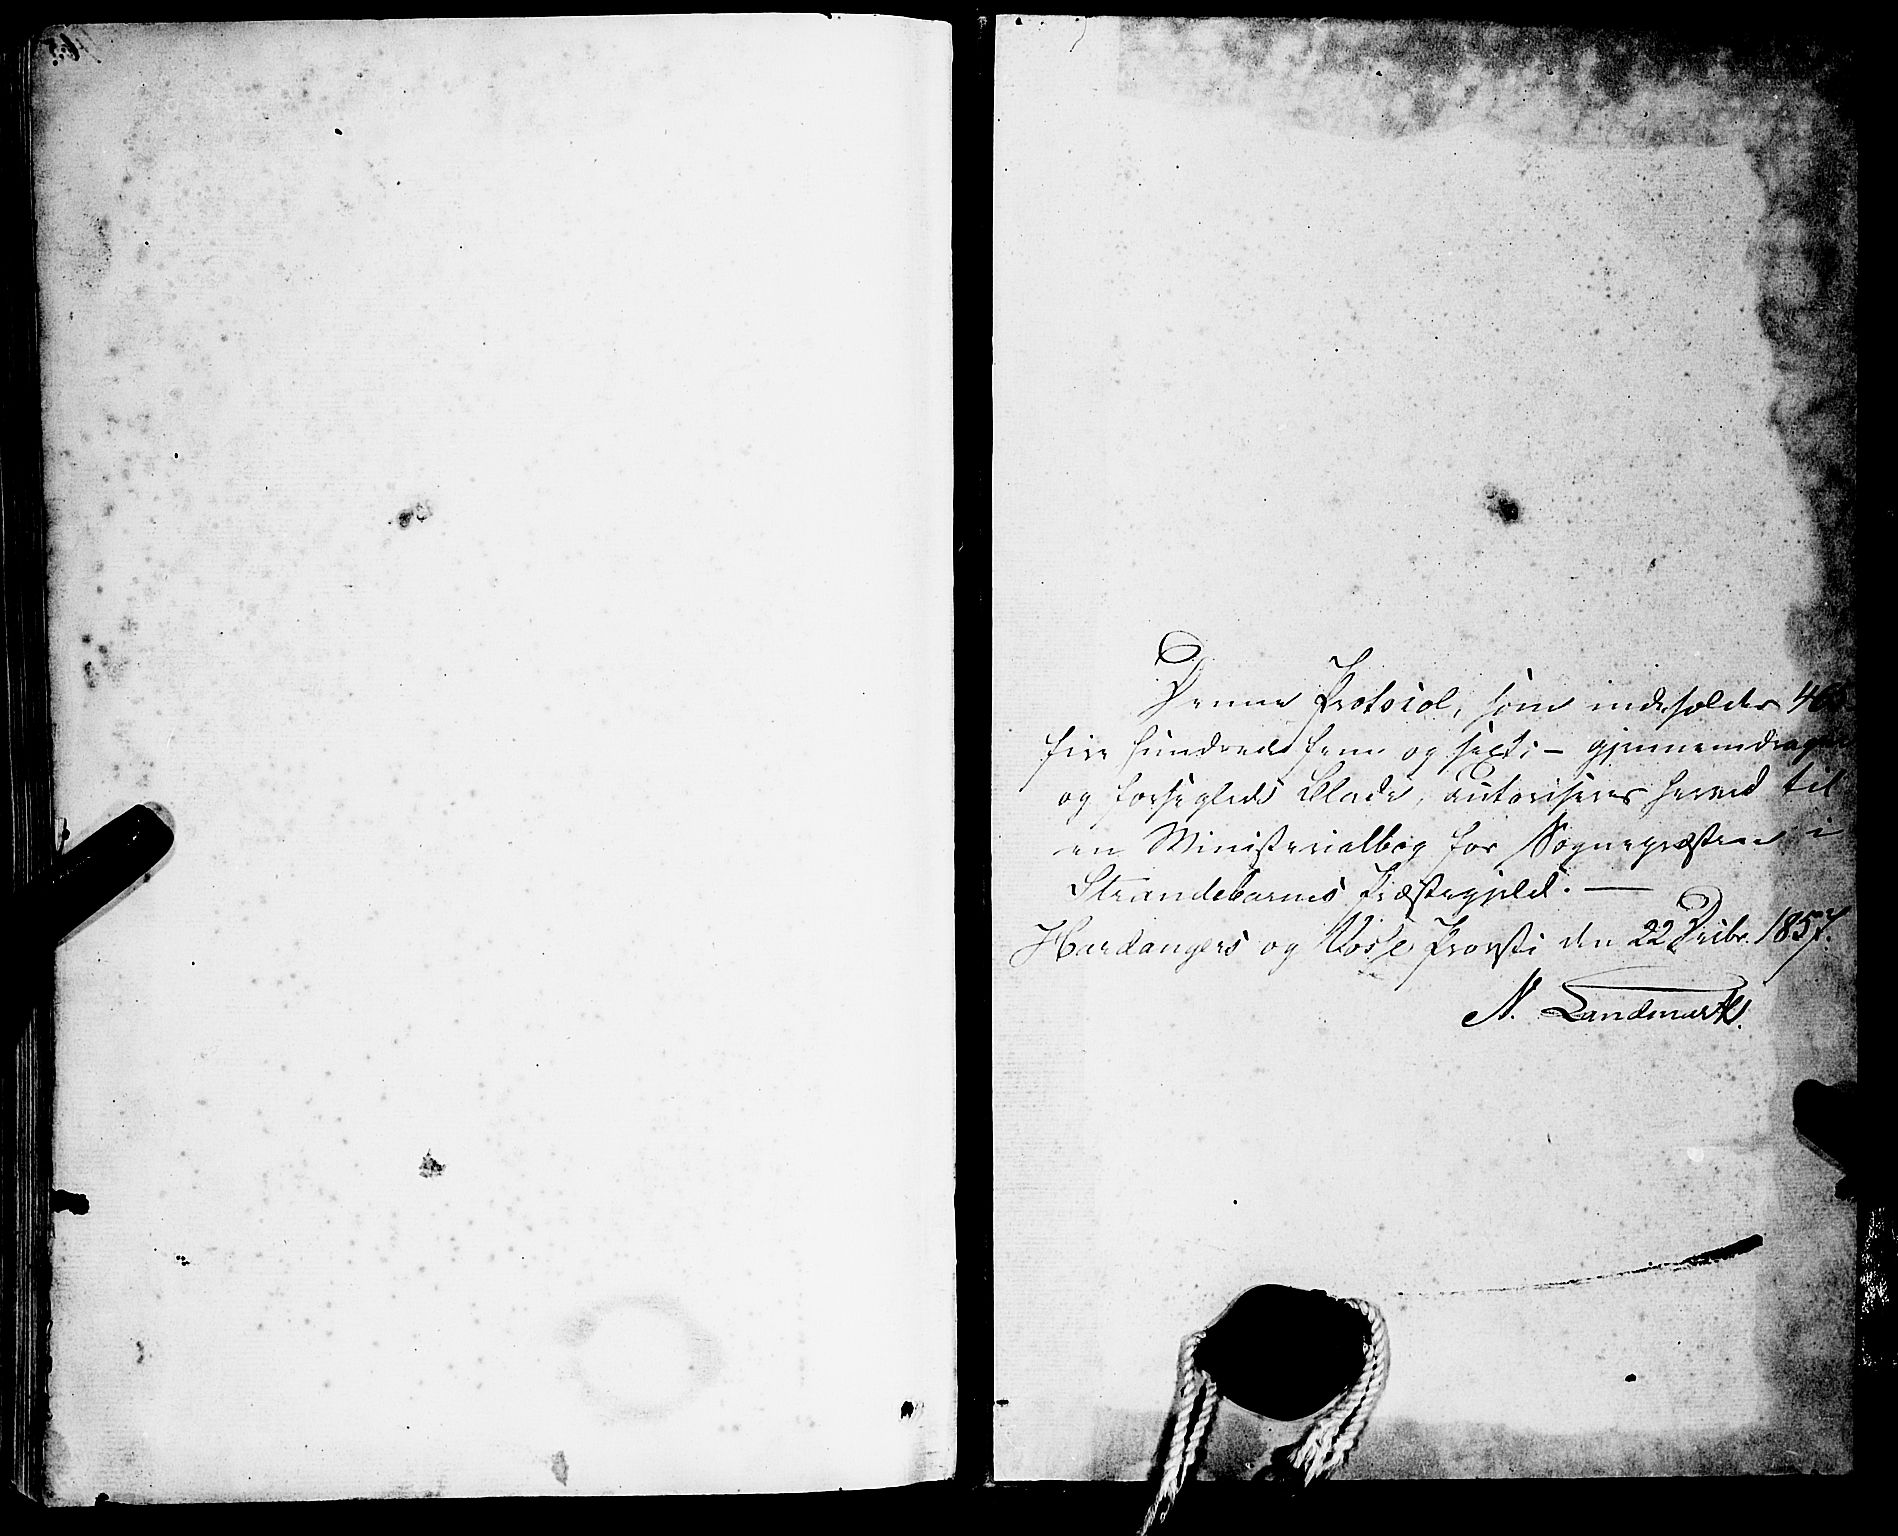 Denne Protocol, som indeholder 465
fire hundrede fem og sexti – gjennemdragne
og forseglede Blade, autoriseres herved til
en Ministerialbog for Sognepræsten i
Strandebarms Præstegjeld. —
Hardangers og Voss Provsti den 22 Decbr. 1857.
N. Landmark.